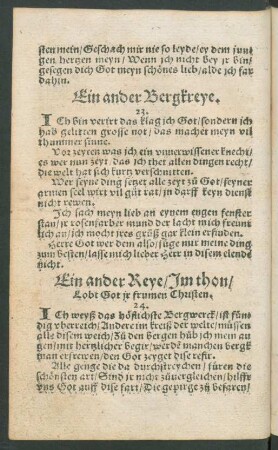 sten mein/Geschach mir nie so leyde/ey dem jun-
gen hertzen meyn/Wenn ich nicht bey jr bin/
gesegen dich Got meyn schönes lieb/alde ich far
dahin.
Ein ander Bergkreye.
23.
ICh bin verirt das klag ich Got/sondern ich
hab gelitten grosse not/das machet meyn vil
thummer sinne.
Vor zeyten was ich ein vnuerwissener knecht/
es wer nun zeyt das ich thet allen dingen recht/
die welt hat sich kurtz verschnitten.
Wer seyne ding setzet alle zeyt zů Got/seyner
armen seel wirt vil gůt rat/in darff keyn dienst
nicht rewen.
Ich sach meyn lieb an eynem engen fenster
stan/jr rosenfarber mund der lacht mich freunt
lich an/ich mocht jres grůß gar klein erfinden.
Herre Got wer dem also/füge nur meine ding
zum besten/lasse mich lieber Herr in disem elende
nicht.
Ein ander Reye/Im thon/
Lobt Got jr frumen Christen.
24.
ICh weyß das höflichste Bergwerck/ist fün-
dig vberreich/Andere im kreiß der welte/müssen
alle disem weich/Zů den bergen hůb ich mein au
gen/mit hertzlicher begir/werdē manchen bergk
man erfrewen/den Got zeyget dise refir.
Alle genge die da durchstreychen/füren die
schönsten art/Sind jr nicht zůuergleichen/hilfft
vns Got auff dise fart/Die gepirge zů befaren/